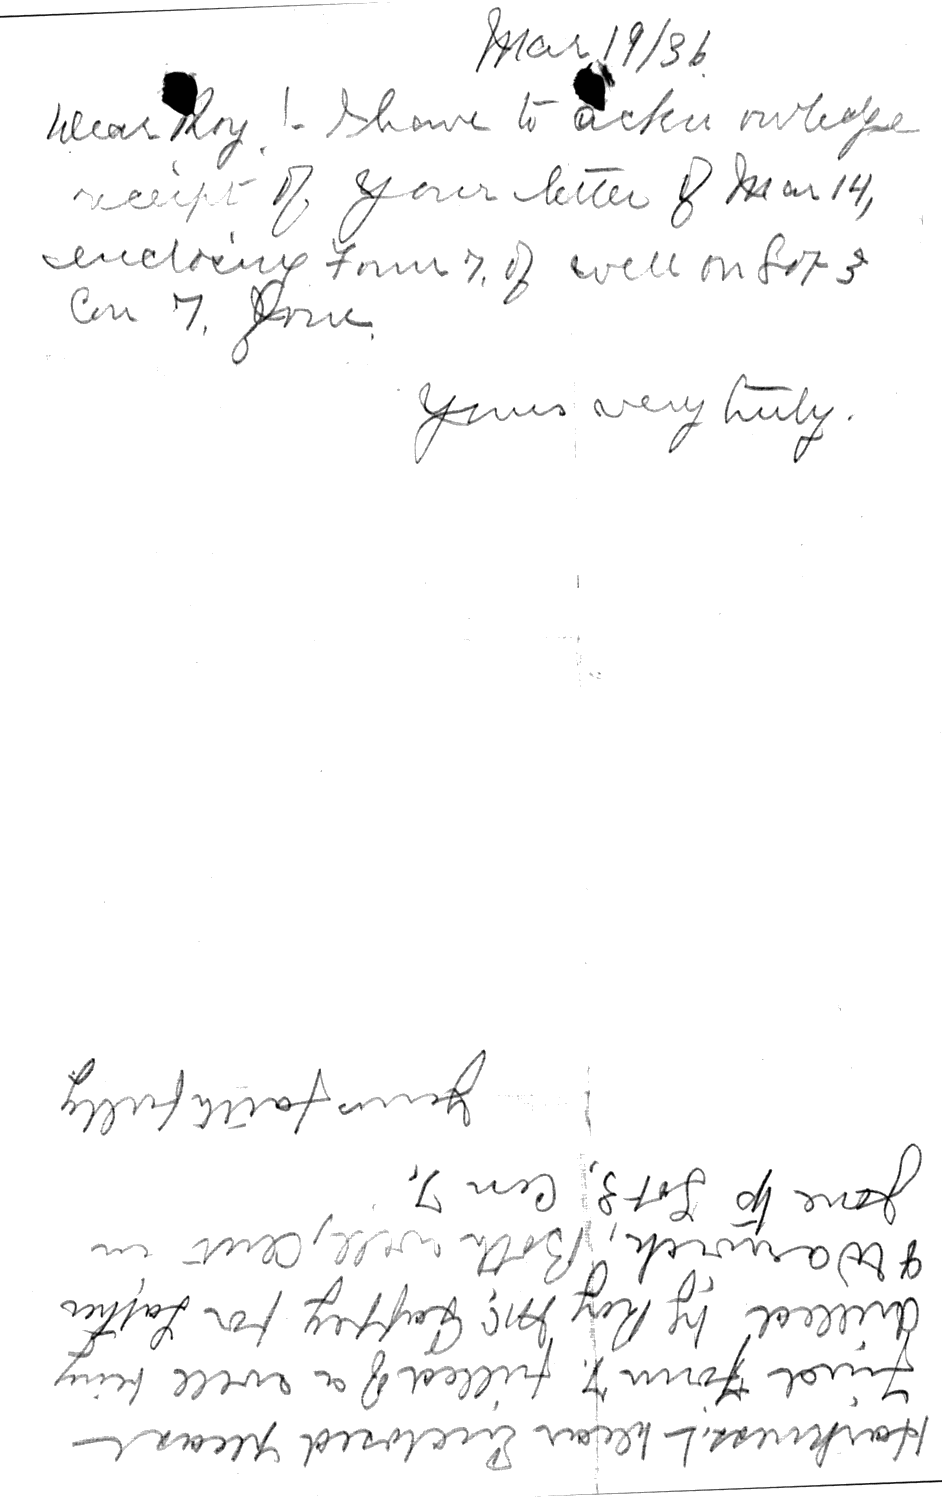 Mar 19/36.
Dear Roy! - I have to acknowledge
receipt of your letter of Mar 14,
enclosing Form 7, of well on Lot 3
Con 7,
Yours very truly.
Harkness! - Dear Enclosed please
find Form 7, filled of a well being
drilled by Roy Mc. Gaffey for
& Warwick, Both well, Cent in
to Lot 3, Con 7,
Yours faithfully